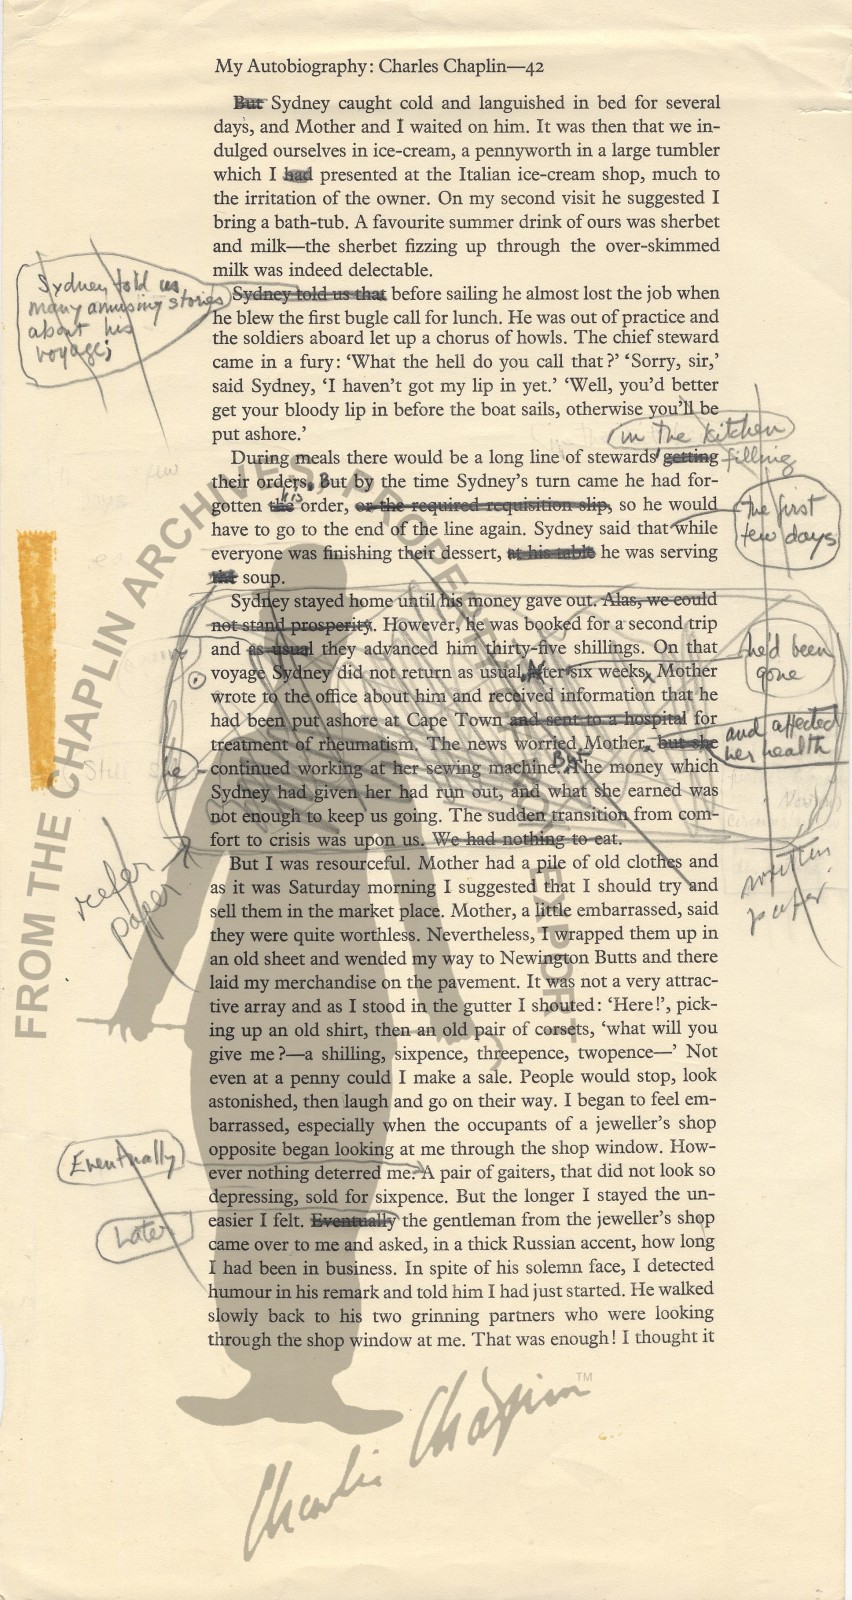 My Autobiography: Charles Chaplin—42
But Sydney caught cold and languished in bed for several
days, and Mother and I waited on him. It was then that we in-
dulged ourselves in ice-cream, a pennyworth in a large tumbler
which I had presented at the Italian ice-cream shop, much to
the irritation of the owner. On my second visit he suggested I
bring a bath-tub. A favourite summer drink of ours was sherbet
and milk—the sherbet fizzing up through the over-skimmed
milk was indeed delectable.
Sydney told us
many amusing stories
about his
voyage;
Sydney told us that before sailing he almost lost the job when
he blew the first bugle call for lunch. He was out of practice and
the soldiers aboard let up a chorus of howls. The chief steward
came in a fury: ‘What the hell do you call that?’ ‘Sorry, sir,’
said Sydney, ‘I haven’t got my lip in yet.’ ‘Well, you’d better
get your bloody lip in before the boat sails, otherwise you’ll be
put ashore.’
in the kitchen
During meals there would be a long line of stewards getting filling
their orders. But by the time Sydney’s turn came he had for-
his
gotten the order, or the required requisition slip, so he would
have to go to the end of the line again. Sydney said that while
the first
few days
everyone was finishing their dessert, at his table he was serving
the soup.
Sydney stayed home until his money gave out. Alas, we could
not stand prosperity. However, he was booked for a second trip
and as usual they advanced him thirty-five shillings. On that
voyage Sydney did not return as usual. After six weeks, Mother
he'd been
gone
wrote to the office about him and received information that he
had been put ashore at Cape Town and sent to a hospital for
treatment of rheumatism. The news worried Mother, but she
and affected
her health
She
continued working at her sewing machine. But The money which
Sydney had given her had run out, and what she earned was
not enough to keep us going. The sudden transition from com-
fort to crisis was upon us. We had nothing to eat.
refer
paper
written
paper
But I was resourceful. Mother had a pile of old clothes and
as it was Saturday morning I suggested that I should try and
sell them in the market place. Mother, a little embarrassed, said
they were quite worthless. Nevertheless, I wrapped them up in
an old sheet and wended my way to Newington Butts and there
laid my merchandise on the pavement. It was not a very attrac-
tive array and as I stood in the gutter I shouted: ‘Here!’, pick-
ing up an old shirt, then an old pair of corsets, ‘what will you
give me?—a shilling, sixpence, threepence, twopence—’ Not
even at a penny could I make a sale. People would stop, look
astonished, then laugh and go on their way. I began to feel em-
barrassed, especially when the occupants of a jeweller’s shop
opposite began looking at me through the shop window. How-
Eventually
ever nothing deterred me. A pair of gaiters, that did not look so
depressing, sold for sixpence. But the longer I stayed the un-
Later
easier I felt. Eventually the gentleman from the jeweller’s shop
came over to me and asked, in a thick Russian accent, how long
I had been in business. In spite of his solemn face, I detected
humour in his remark and told him I had just started. He walked
slowly back to his two grinning partners who were looking
through the shop window at me. That was enough! I thought it
FROM THE CHAPLIN ARCHIVES, PROPERTY OF ROY EXPORT
Charlie Chaplin TM